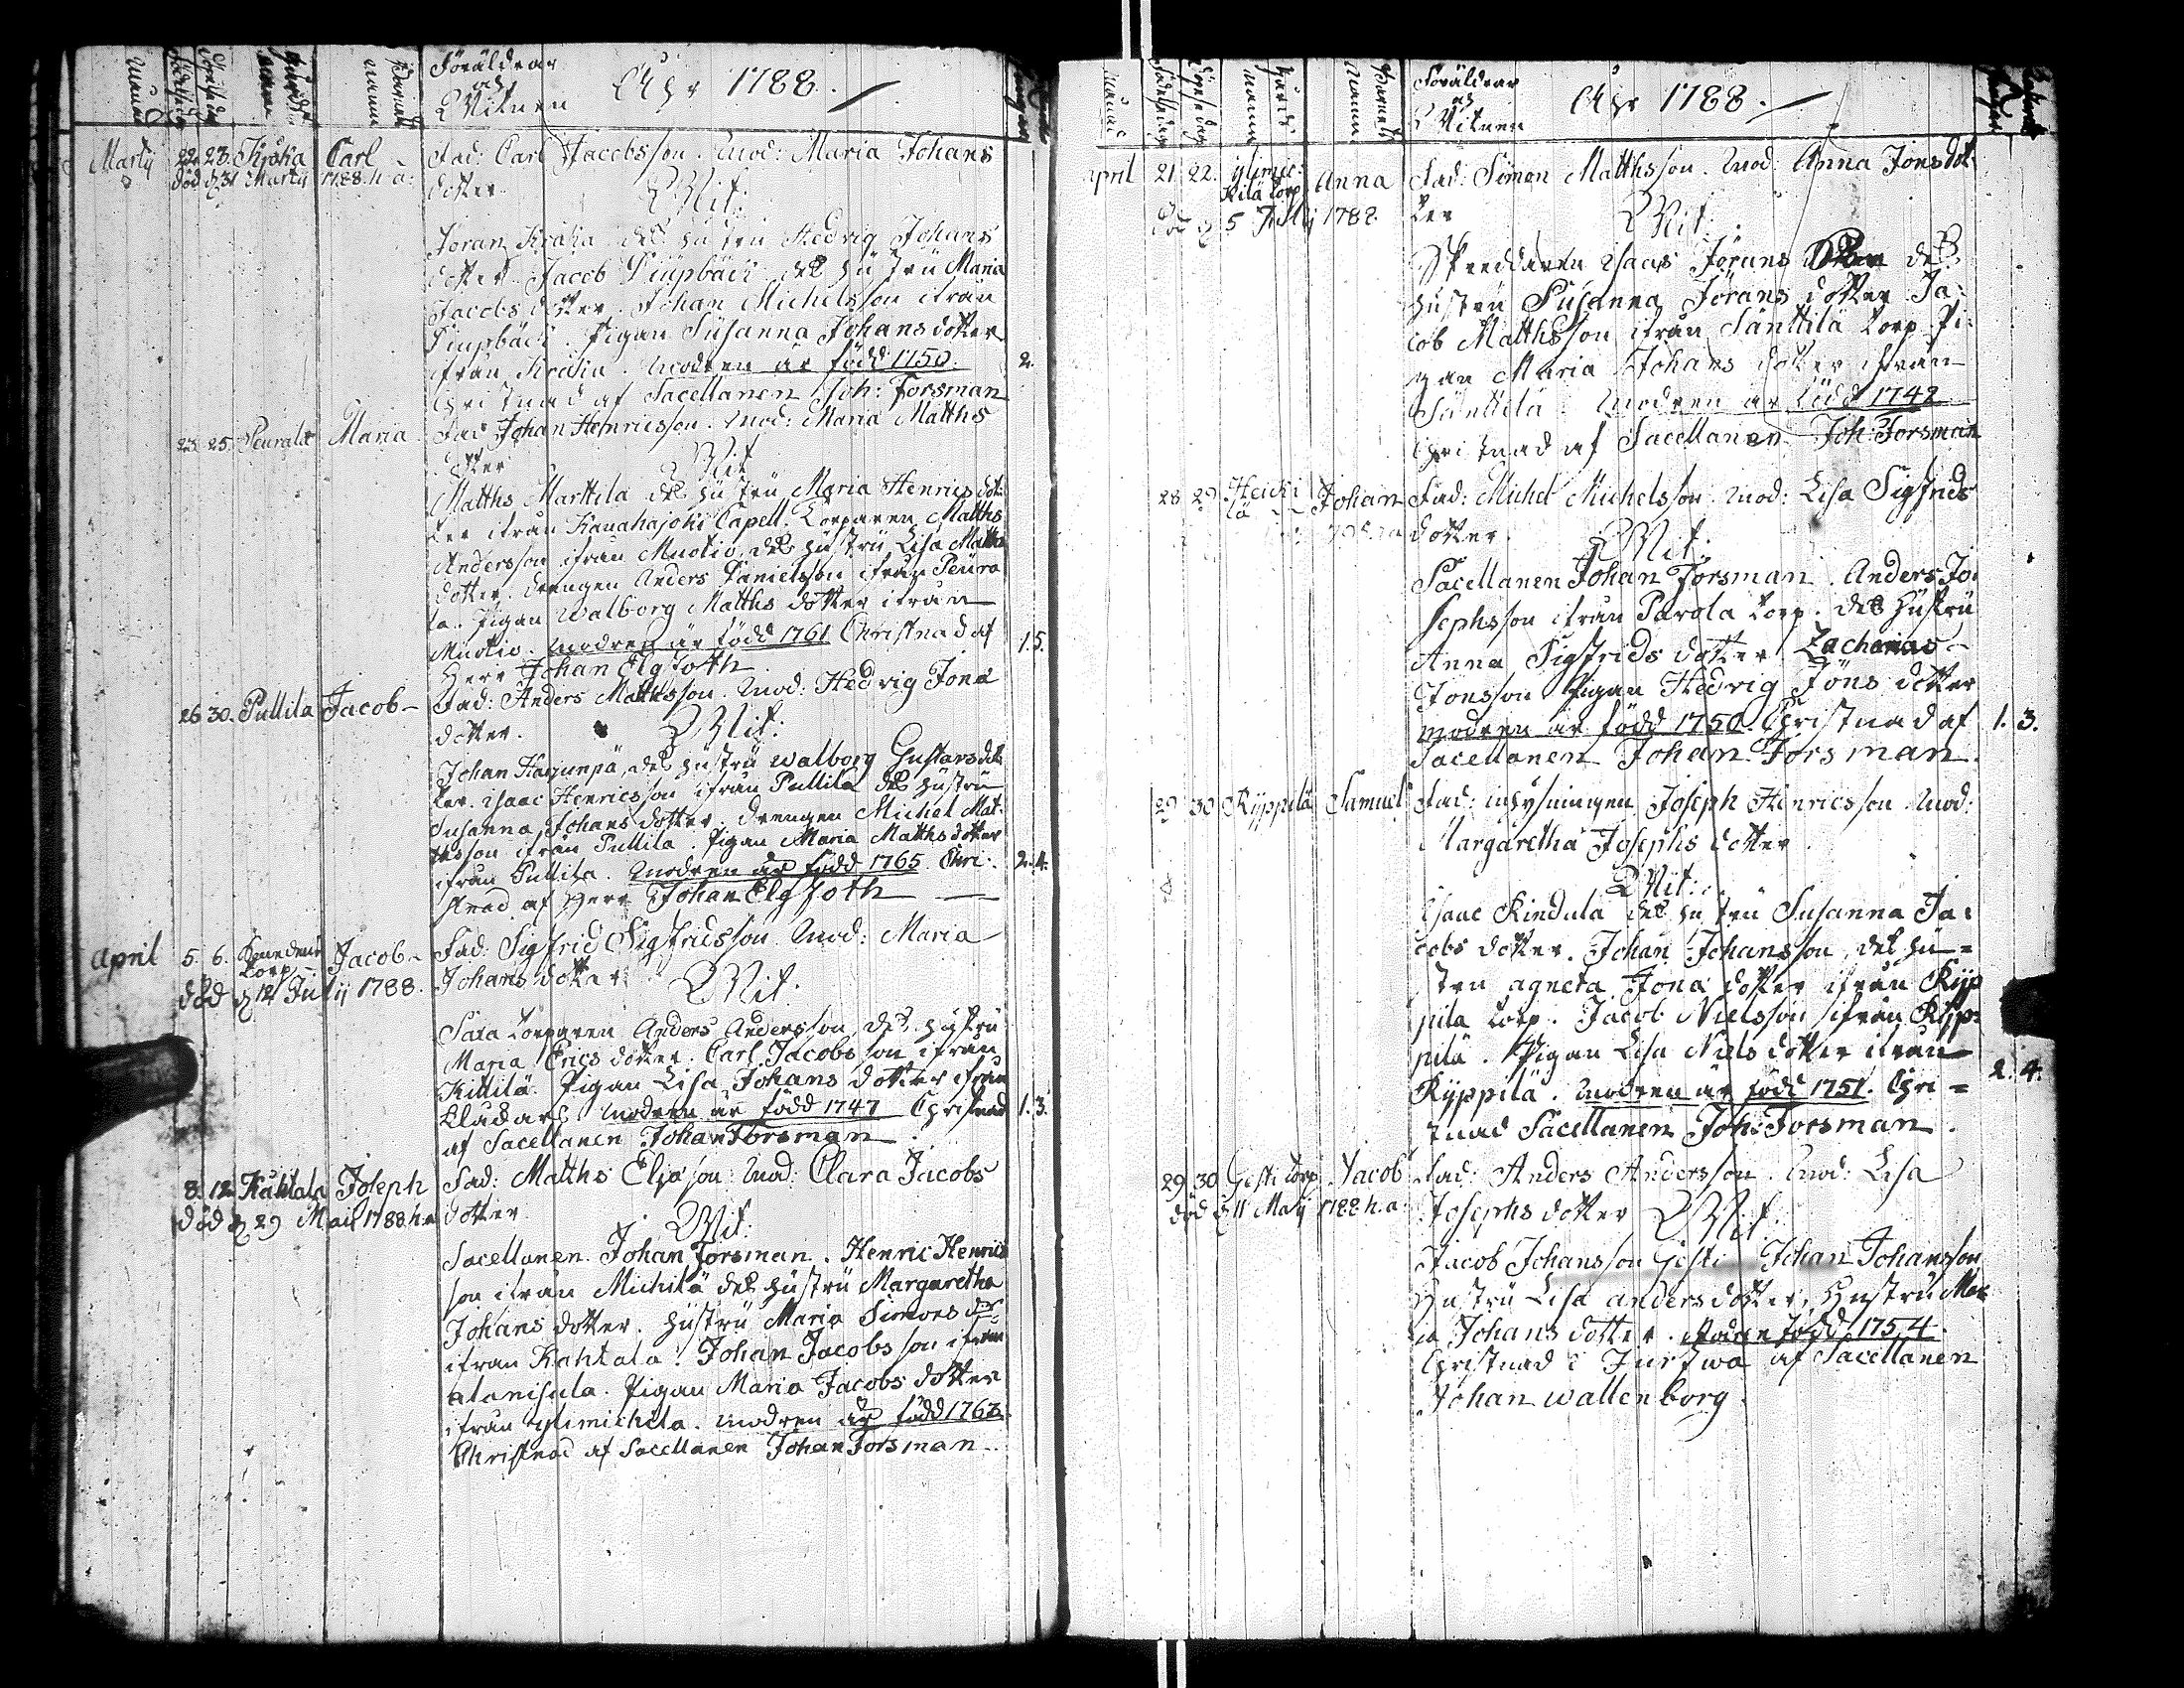 Månad
Födelse dag
Döpelse dag
Gårds namn
Barnets namn
Föräldrar
och
Witnen
Åhr 1788.
Martij 22. 23. Kråka Carl Fad: Carl Jacobsson. Mod: Maria Johans
död d. 31 Martij 1788. h. a: dotter. Wit:
Jöran Kråka dess hustru Hedvig Johans
dotter. Jacob Diupbäck dess hustru Maria
Jacobs dotter. Johan Michelsson ifrån
Diupbäck. Pigan Susanna Johansdotter
ifrån Kråka. Modren är född 1750. 2.
Christnad af Sacellanen Joh: Forsman
23 25. Peurala Maria Fad: Johan Henricsson. Mod: Maria Matths
dotter Wit
Matths Marttila dess hustru Maria Henricsdot-
ter ifrån Kauhajoki Capell. Torparen Matths
Andersson ifrån Muotio, dess hustru Lisa Matths
dotter. Drengen Anders Danielsson ifrån Peura
la. Pigan Walborg Matths dotter ifrån
Muotio. Modren är född 1761 Christnad af 1. 5.
Herr Johan Elgfoth
26 30. Pullila Jacob Fad: Anders Matthsson. Mod: Hedvig Jona
dotter. Wit:
Johan Harjunpä, dess hustru Walborg Gustavsdot
ter. Isaac Henricsson ifrån Pullila dess hustru
Susanna Johans dotter. Drengen Michel Mat-
thsson ifrån Pullila. Pigan Maria Matthsdotter
ifrån Pullila. Modren är född 1765. Chri- 2. 4.
stnad af Herr Johan Elgfoth
April 5. 6. Torp Jacob Fad: Sigfrid Sigfridsson Mod: Maria
död d. 12 Julij 1788. Johans dotter Wit:
Torparen Anders Andersson, dess hustru
Maria Erics dotter. Carl Jacobsson ifrån
Kittilä. Pigan Lisa Johans dotter ifrån
Modren är född 1747 Christnad 1. 3.
af Sacellanen Johan Forsman
8. 12. Kahtala Joseph Fad: Matths Eliasson Mod: Clara Jacobs
död d. 29 Maij 1788 h. a dotter. Wit:
Sacellanen Johan Forsman. Henric Henrics
son ifrån Michilä dess hustru Margaretha
Johans dotter. Hustru Maria Simons dr
ifrån Kahtala. Johan Jacobsson ifrån
Alanisula. Pigan Maria Jacobs dotter
ifrån Ylimichila. Modren är född 1763.
Christnad af Sacellanen Johan Forsman
Månad
Födelse dag
Döpelse dag
Gårds namn
Barnets namn
Föräldrar
och
Witnen
Åhr 1788.
April 21. 22. Anna Fad: Simon Matthsson. Mod: Anna Jonsdot-
Torp
död d. 5 Julij 1788. ter Wit:
Skreddaren Isaac Jörans dess
hustru Susanna Jörans dotter. Ja-
cob Matthsson ifrån Sänttilä torp Pi-
gan Maria Johans dotter ifrån
Sänttilä. Modren är född 1748
Christnad af Sacellanen Joh: Forsman
28 29. Heicki
lä Johan Fad: Michel Michelsson. Mod: Lisa Sigfrids
dotter. Wit:
Sacellanen Johan Forsman. Anders Jo-
sephsson ifrån Parola torp. dess hustru
Anna Sigfrids dotter. Zacharias
Jonsson Pigan Hedvig Jöns dotter
Modren är född 1750. Christnad af 1. 3.
Sacellanen Johan Forsman.
29 30 Kyppilä Samuel Fad: inhysningen Joseph Henricsson Mod:
Margaretha Josephs dotter
Wit:
Isaac Rindula dess hustru Susanna Ja-
cobs dotter. Johan Johansson, dess hu-
stru Agneta Jona dotter ifrån Kyp
pilä torp. Jacob Nielsson ifrån Kyp-
pilä. Pigan Lisa Niels dotter ifrån
Kyppilä. Modren är född 1751. Chri- 2. 4.
stnad Sacellanen Joh: Forsman.
29 30 Gesti torp Jacob Fad: Anders Andersson. Mod: Lisa
död d. 11 Maij 1788 h. a: Josephs dotter Wit:
Jacob Johansson Gesti Johan Johansson
Hustru Lisa Anders dotter, Hustru Mar
ia Johans dotter. Modren född 1754.
Christnad i Jurfwa af Sacellanen
Johan Wallenborg.